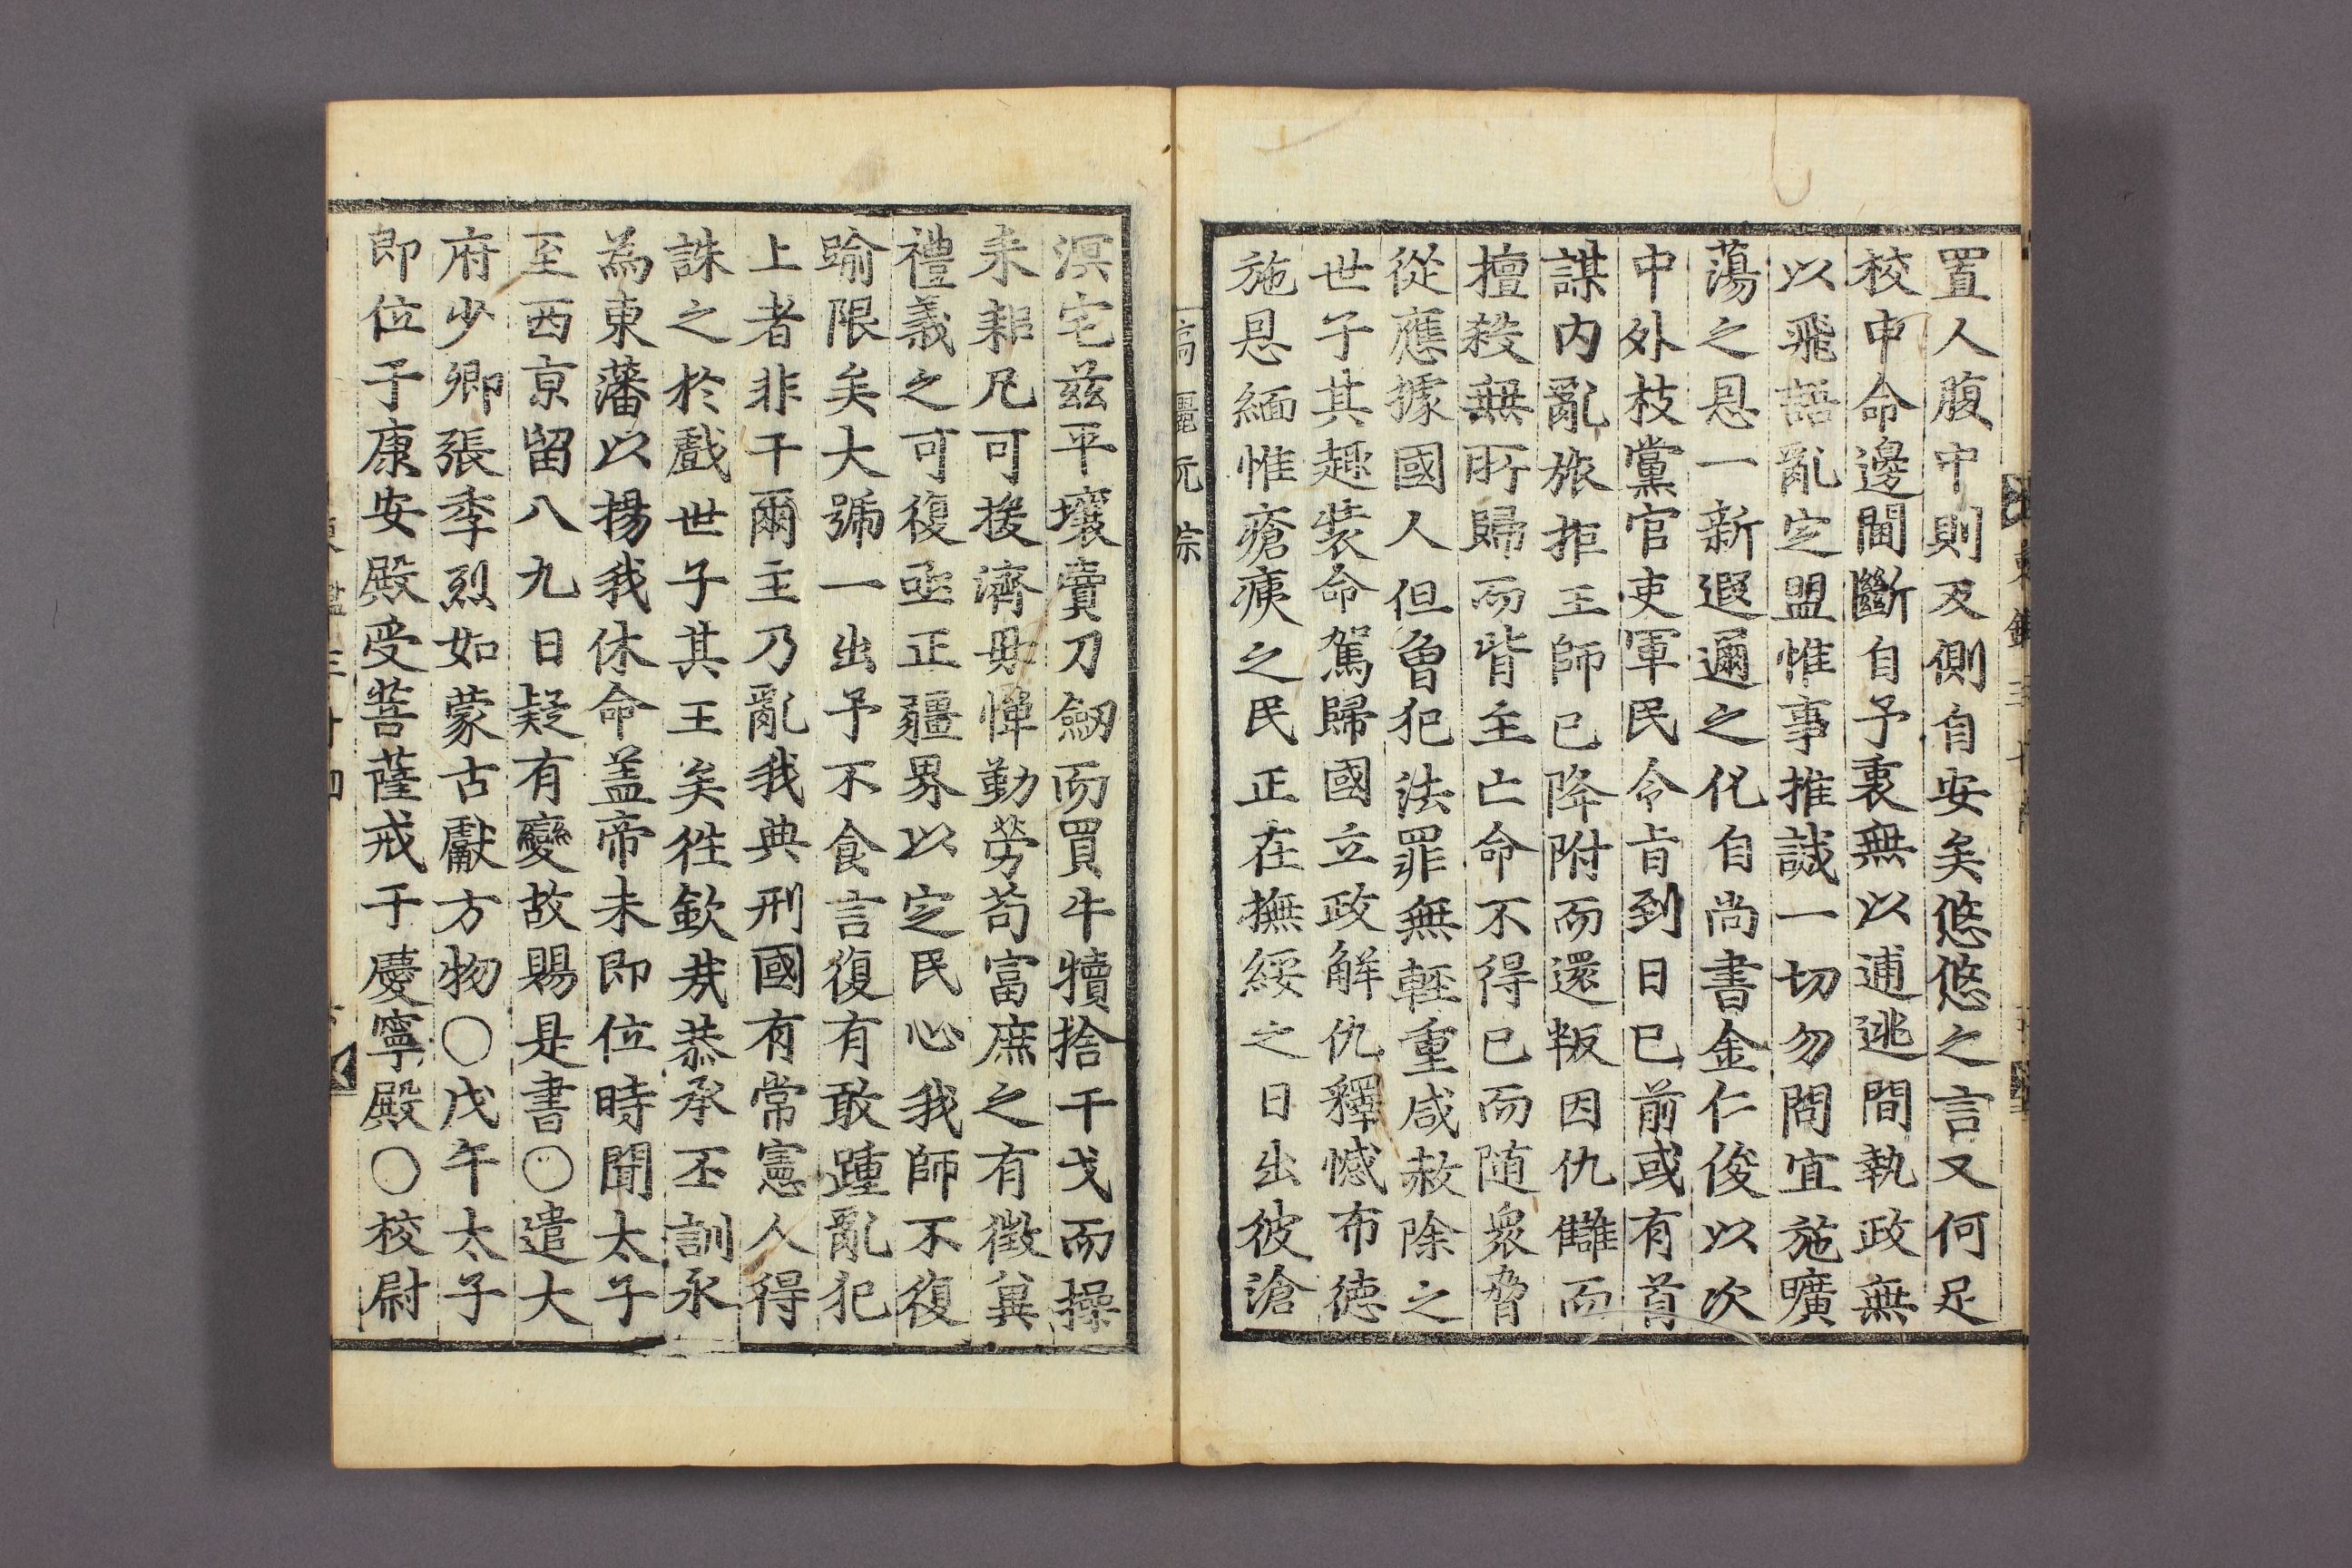 置人腹中則反側自安矣悠悠之言又何足
校申命邊閫斷自予衷無以逋逃間執政無
以飛語亂定盟惟事推誠一切勿問宜施曠
蕩之恩一新遐邇之化自尚書金仁俊以次
中外枝黨官吏軍民令旨到日已前或有首
謀內亂旅拒王師已降附而還叛因仇讎而
擅殺無所歸而背主亡命不得已而随衆脅
從應據國人但曾犯法罪無輕重咸赦除之
世子其趣裝命駕歸國立政解仇釋憾布德
施恩緬惟瘡痍之民正在撫綏之日出彼滄
高麗元宗
溟宅茲平壤賣刀劒而買牛犢捨干戈而操
耒耜凡可援濟毋憚勤勞苟富庶之有徵冀
禮義之可復亟正疆界以定民心我師不復
踰限矣大號一出予不食言復有敢踵亂犯
上者非干爾主乃亂我典刑國有常憲人得
誅之於戲世子其王矣徃欽㢤恭承丕訓永
為東藩以揚我休命盖帝未即位時聞太子
至西京留八九日疑有變故賜是書○遣大
府少卿張季烈如蒙古獻方物○戊午太子
即位于康安殿受菩薩戒于慶寧殿○校尉